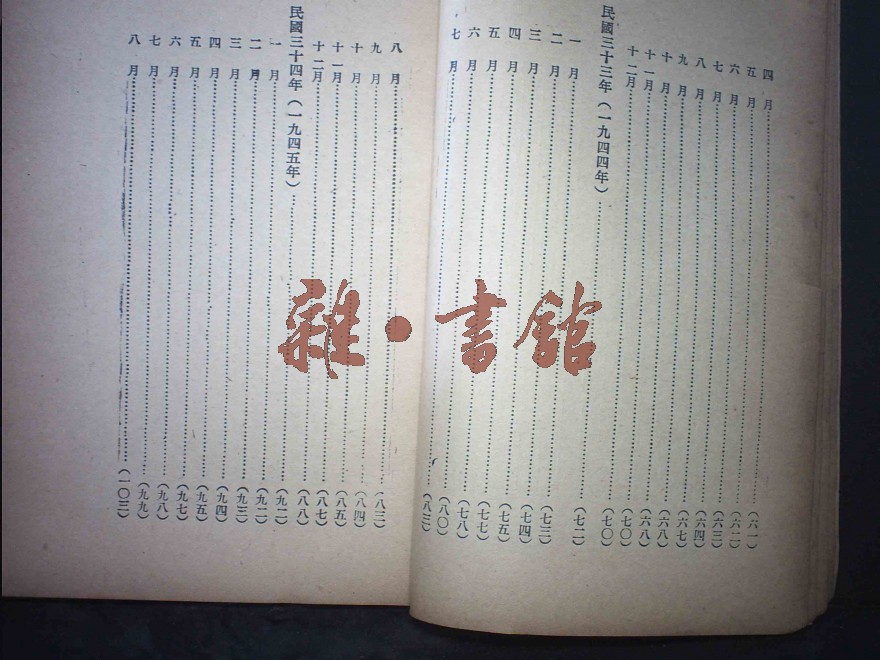 四月……(六一)
五月……(六二)
六月……(六三)
七月……(六四)
八月……(六七)
九月……(六八)
十月……(六八)
十一月……(七〇)
十二月……(七〇)
民國三十三年(一九四四年)……(七二)
一月……(七三)
二月……(七四)
三月……(七五)
四月……(七七)
五月……(七八)
六月……(八〇)
七月……(八三)
八月……(八三)
九月……(八四)
十月……(八五)
十一月……(八七)
十二月……(八八)
民國三十四年(一九四五年)……(九二)
一月……(九二)
二月……(九三)
三月……(九四)
四月……(九五)
五月……(九七)
六月……(九八)
七月……(九九)
八月……(一〇三)
雜·書館